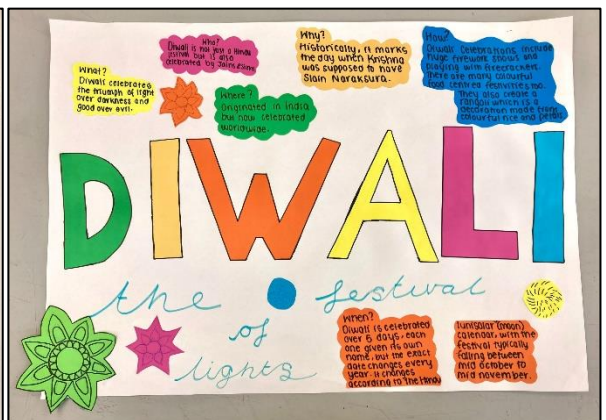 What?
Diwali celebrates
the triumph of light
over darkness and
good over evil.
Who?
Diwali is not just a Hindu
festival but is also
celebrated by Jains
Where?
Originated in India
but now celebrated
worldwide.
Why?
Historically, it marks
the day when Krishna
was supposed to have
Slain Naraksura.
How?
Diwali Celebrations include
huge firework shows and
playing with firecrackers.
There are many colourful
food centred festivities too.
They also create a
rangoli which is a
decoration made from
colourful rice and petals.
DIWALI
the festival
of
lights
When?
Diwali is celebrated
over 5 days, each
one given its own
name, but the exact
date changes every
year. It changes
according to the Hindu
lunisolar (moon)
calendar, with the
festival typically
falling between
mid october to
mid november.